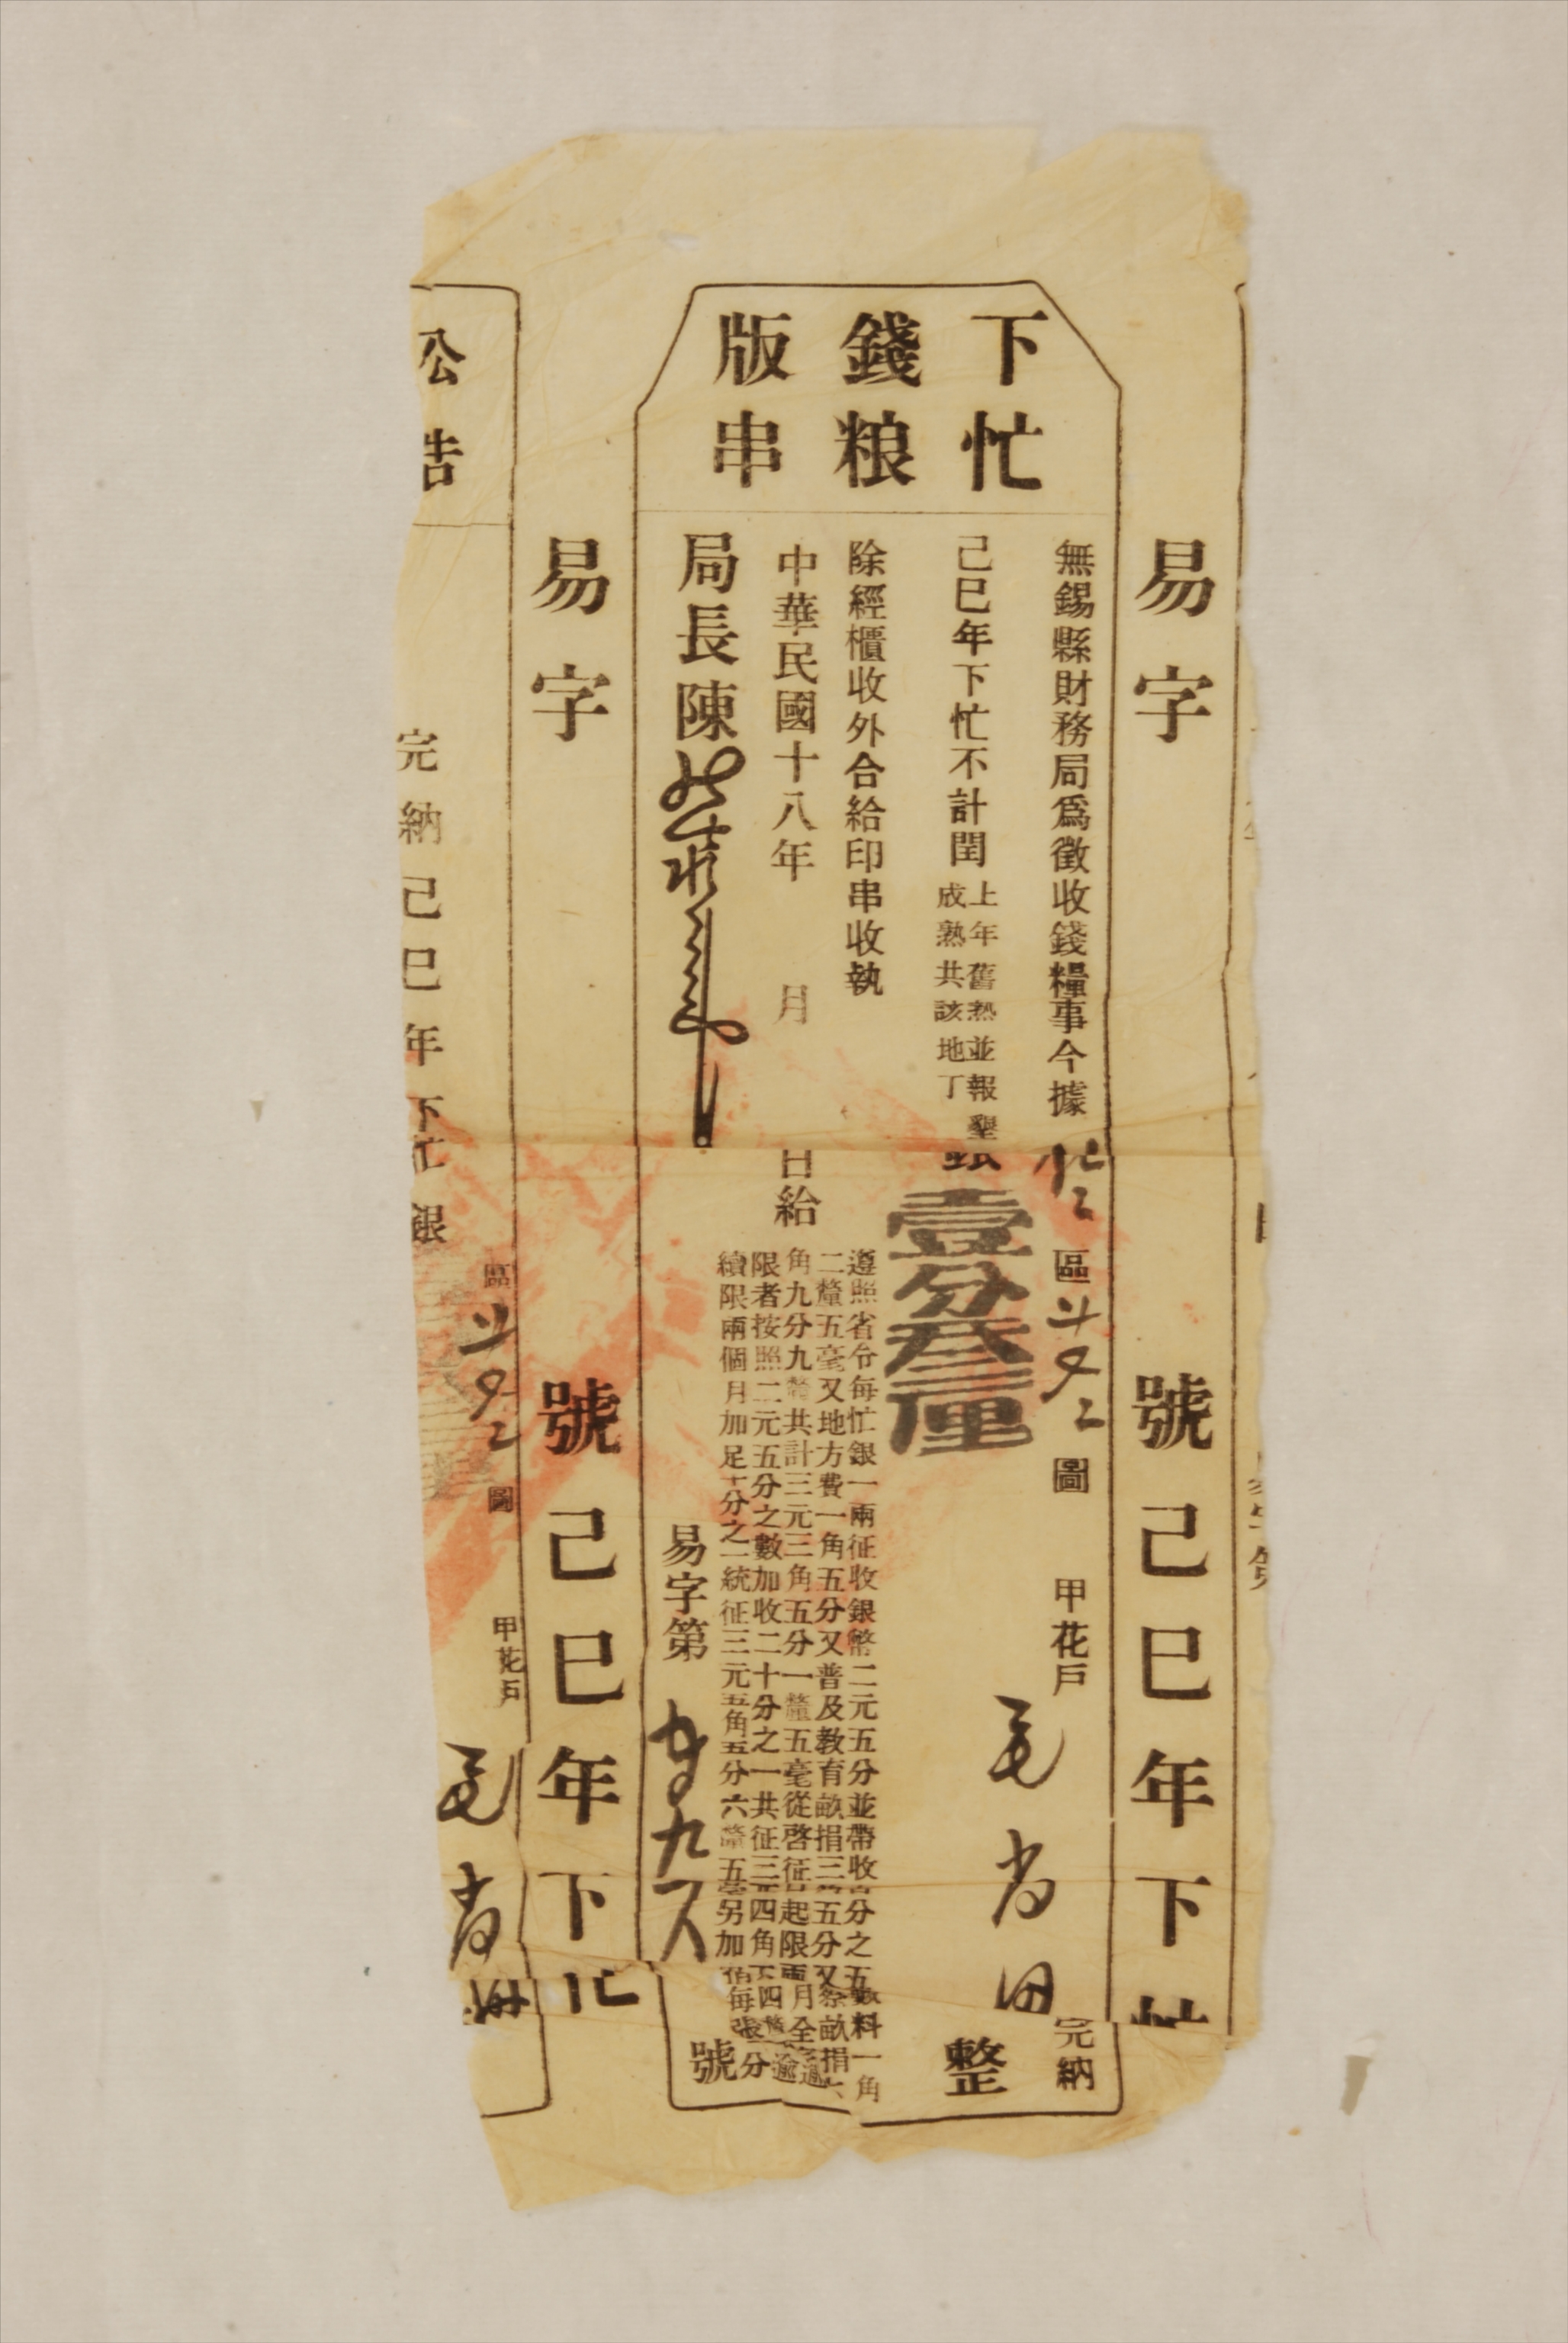 易字 號己巳年下忙
下忙
錢粮
版串
無錫縣財務局爲徵收錢糧事今據 區 圖 甲花戶 毛 完納
己巳年下忙不計閏
上年舊熟並報墾
成熟共該地丁
銀壹分叁厘 整
除經櫃收外合給印串收執
遵照省令每忙銀一兩征收銀幣二元五分並帶收 分之五 料一角
二釐五毫又地方費一角五分又普及教育畝捐三 五分又 畝捐六
角九分九釐共計三元三角五分一釐五毫從啓征日起限兩月全 逾
限者按照二元五分之數加收二十分之一共征三元四角五 四釐 逾
續限兩個月加足十分之一統征三元五角五分六釐五毫另加 每張 分
中華民國十八年 月 日給
局長陳
易字第 號
易字 號己巳年下忙
公告
區 圖 甲花戶 毛
完納己巳年下忙銀